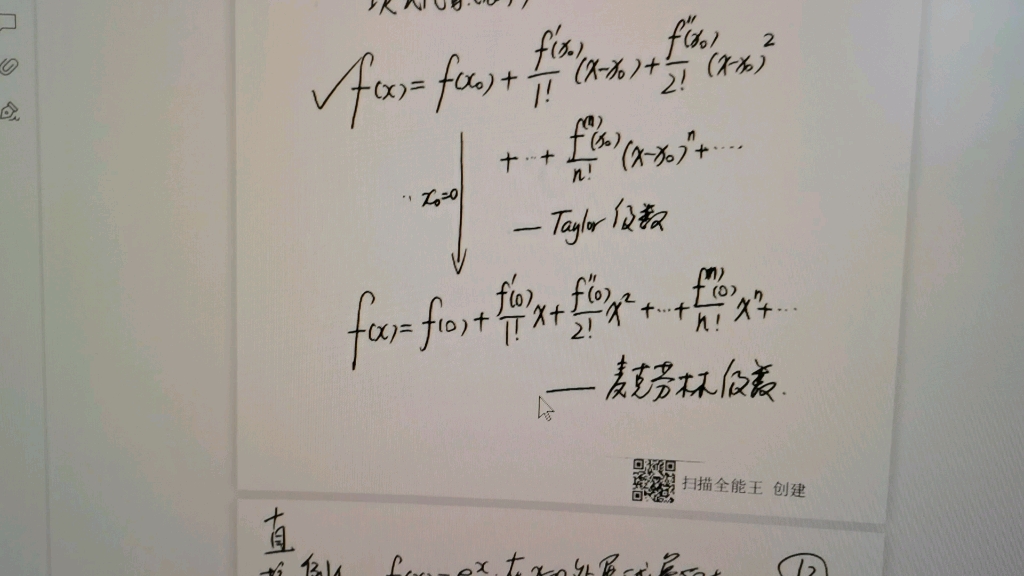 f(x)=f(x₀)+f'(x₀)/1!(x-x₀)+f''(x₀)/2!(x-x₀)²
+…+f⁽ⁿ⁾(x₀)/n!(x-x₀)ⁿ+……
x₀=0
— Taylor级数
f(x)=f(0)+f'(0)/1!x+f''(0)/2!x²+…+f⁽ⁿ⁾(0)/n!xⁿ+…
— 麦克劳林级数.
扫描全能王 创建
直
f(x)=eˣ在x=0处